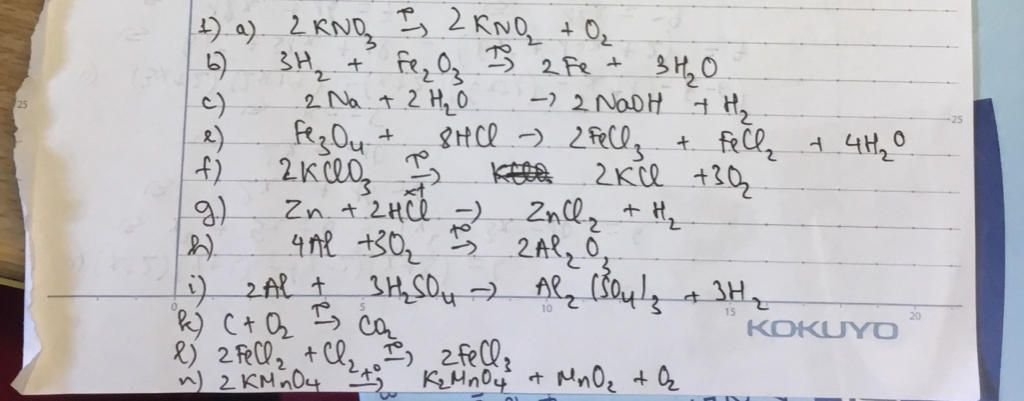 1) a) 2KNO₃ →(T°) 2KNO₂ + O₂
b) 3H₂ + Fe₂O₃ →(T°) 2Fe + 3H₂O
c) 2Na + 2H₂O → 2NaOH + H₂
e) Fe₃O₄ + 8HCl → 2FeCl₃ + FeCl₂ + 4H₂O
f) 2KClO₃ →(T°, xt) 2KCl + 3O₂
g) Zn + 2HCl → ZnCl₂ + H₂
h) 4Al + 3O₂ →(T°) 2Al₂O₃
i) 2Al + 3H₂SO₄ → Al₂(SO₄)₃ + 3H₂
k) C + O₂ →(T°) CO₂
l) 2FeCl₂ + Cl₂ →(T°) 2FeCl₃
n) 2KMnO₄ →(T°) K₂MnO₄ + MnO₂ + O₂
25
25
0 5 10 15 20
KOKUYO